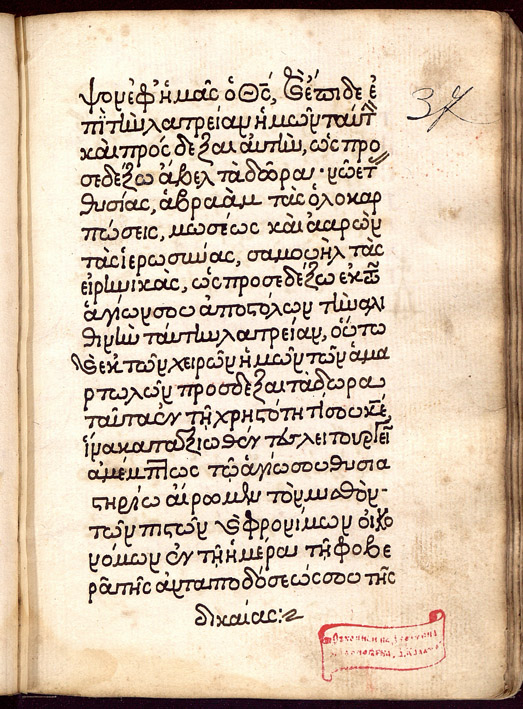 ψον ἐφ ἡμᾶς ὁ Θς, καὶ ἔπιδε ἐ
πὶ τὴν λατρείαν ἡμῶν ταύτην
καὶ πρόσδεξαι αὐτὴν, ὡς προ
σεδέξω ἄβελ τὰ δῶρα· νῶε τ
θυσίας, ἀβραὰμ τὰς ὁλοκαρ
πώσεις, μωσέως καὶ ἀαρὼν
τὰς ἱερωσύνας, σαμουὴλ τὰς
εἰρηνικὰς, ὡς προσεδέξω ἐκ τῶν
ἁγίων σου ἀποστόλων τὴν ἀλη
θινὴν ταύτην λατρείαν, οὕτω
καὶ ἐκ τῶν χειρῶν ἡμῶν τῶν ἁμα
ρτωλῶν πρόσδεξαι τὰ δῶρα
ταῦτα ἐν τῇ χρηστότητί σου κε,
ἵνα καταξιωθέντες λειτουργεῖν
ἀμέμπτως τῷ ἁγίω σου θυσια
στηρίω εὕρωμεν τὸν μισθὸν
τῶν πιστῶν καὶ φρονίμων οἰκο
νόμων ἐν τῇ ἡμέρα τῇ φοβε
ρᾶ τῆς ἀνταποδόσεώς σου τῆς
δικαίας:~